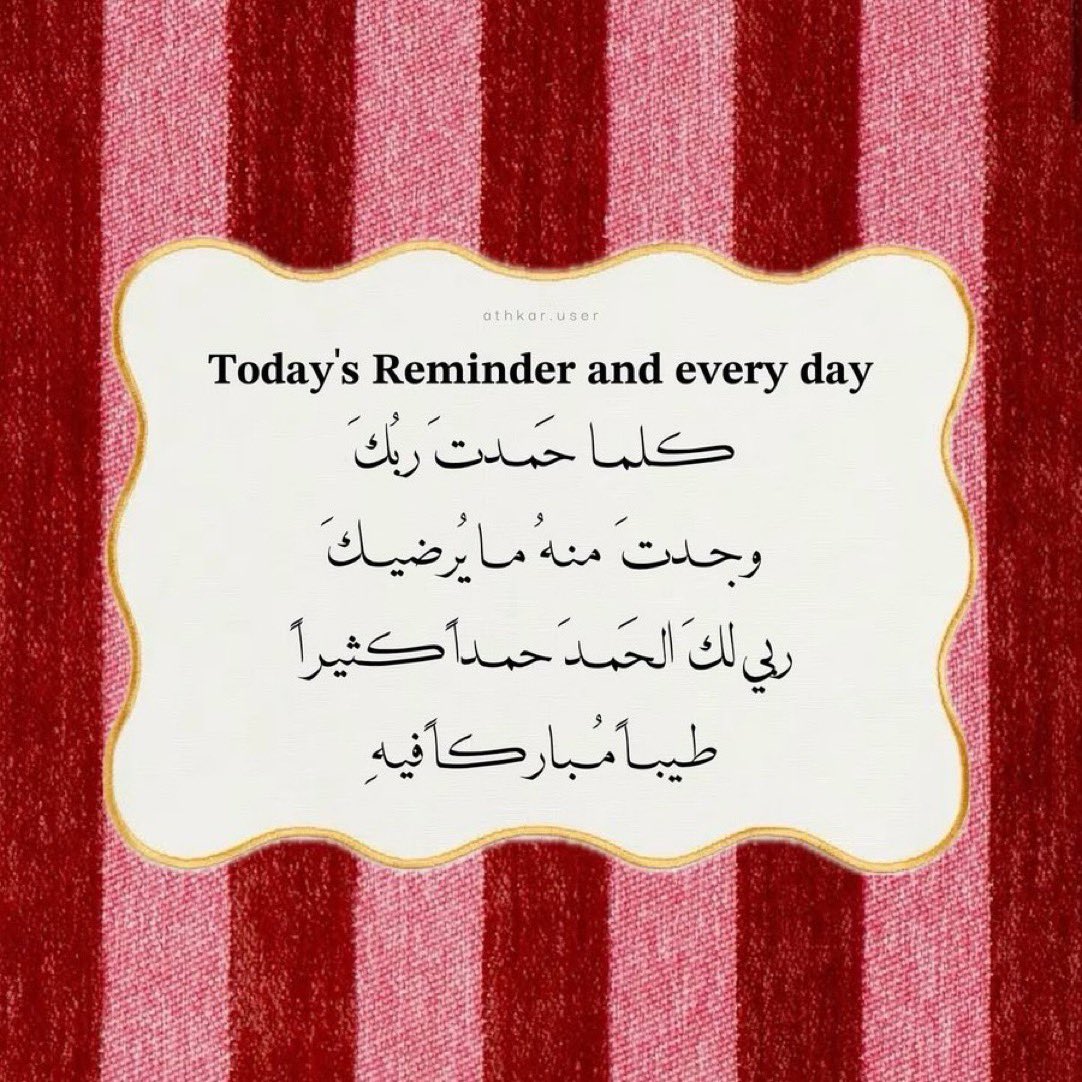 athkar.user
Today's Reminder and every day
كلما حَمدتَ ربُكَ
وجدتَ منهُ ما يُرضيكَ
ربي لكَ الحَمدَ حمداً كثيراً
طيباً مُباركاً فيهِ